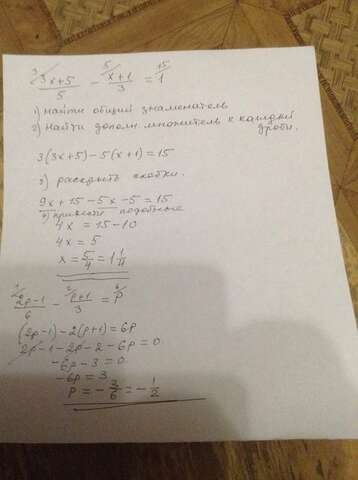 3 3x+5/5 - 5 x+1/3 = 15/1
1) найти общий знаменатель
2) Найти дополн. множитель к каждой дроби.
3(3x+5)-5(x+1)=15
3) раскрыть скобки.
9x+15-5x-5=15
4) привести подобные
4x=15-10
4x=5
x=5/4=1 1/4
1 2p-1/6 - 2 p+1/3 = 6 p
(2p-1)-2(p+1)=6p
2p-1-2p-2-6p=0
-6p-3=0
-6p=3
p=-3/6=-1/2